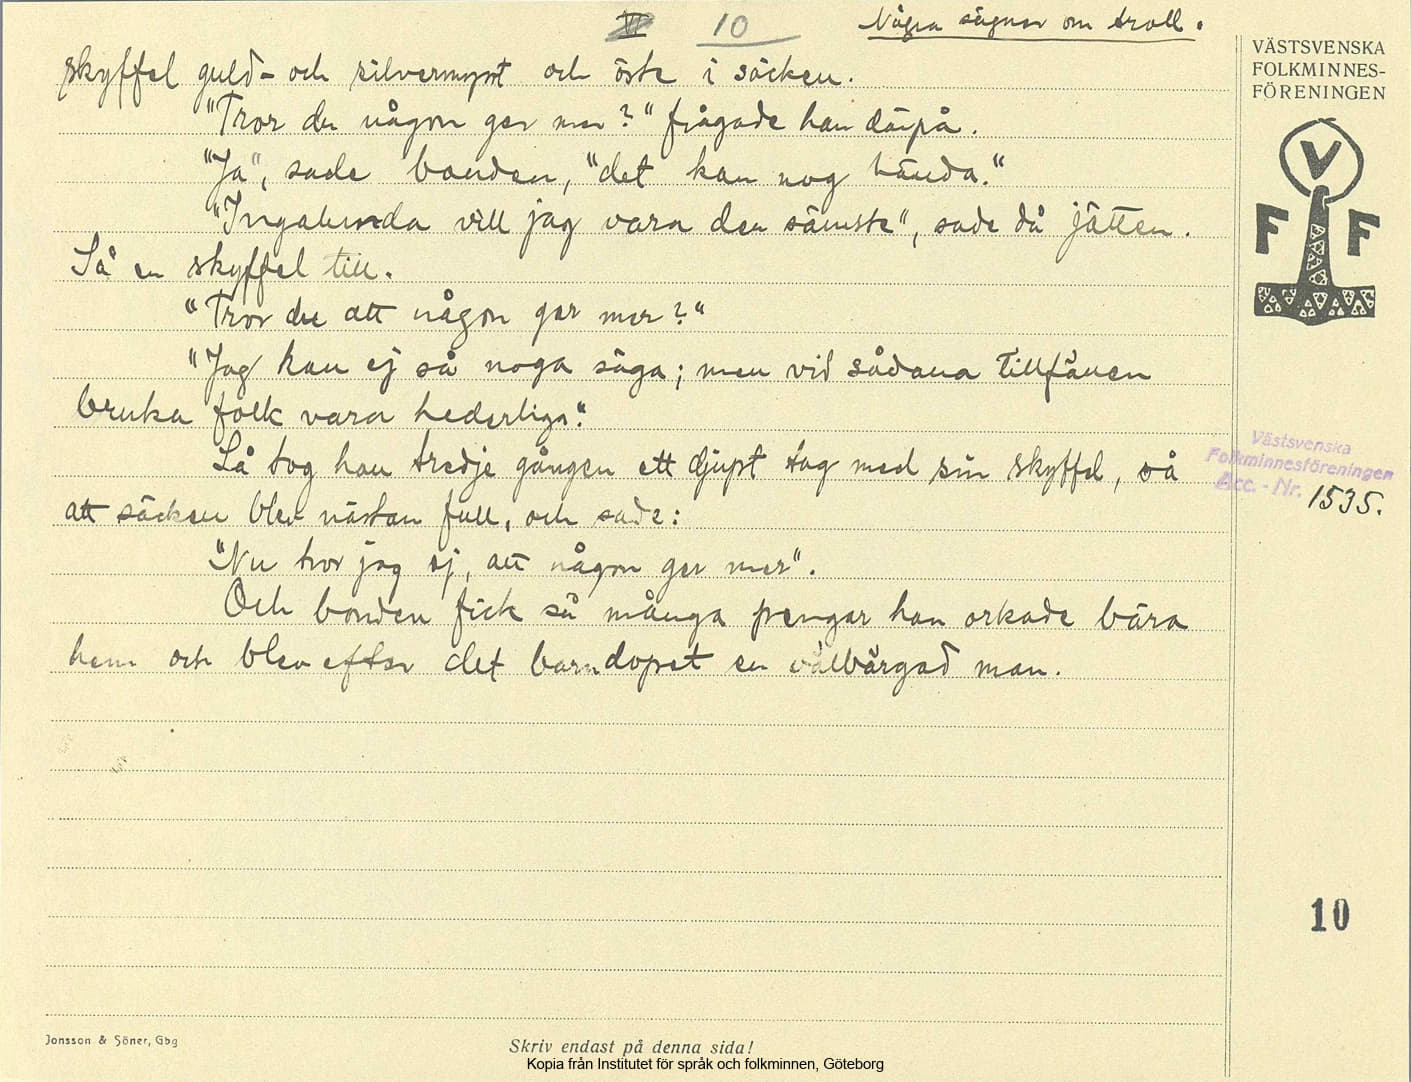 VI 10 Några sägner om troll.
skyffel guld- och silvermynt och öste i säcken.
"Tror du någon ger mer?" frågade han därpå.
"Ja", sade bonden, "det kan nog hända."
"Ingalunda vill jag vara den sämste", sade då jätten.
Så en skyffel till.
"Tror du att någon ger mer?"
"Jag kan ej så noga säga; men vid sådana tillfällen
bruka folk vara hederliga."
Så tog han tredje gången ett djupt tag med sin skyffel, så
att säcken blev nästan full, och sade:
"Nu tror jag ej, att någon ger mer".
Och bonden fick så många pengar han orkade bära
hem och blev efter det barndopet en välbärgad man.
VÄSTSVENSKA
FOLKMINNES-
FÖRENINGEN
V
F F
Västsvenska
Folkminnesföreningen
Acc.-Nr. 1535.
10
Jonsson & Söner, Gbg
Skriv endast på denna sida!
Kopia från Institutet för språk och folkminnen, Göteborg